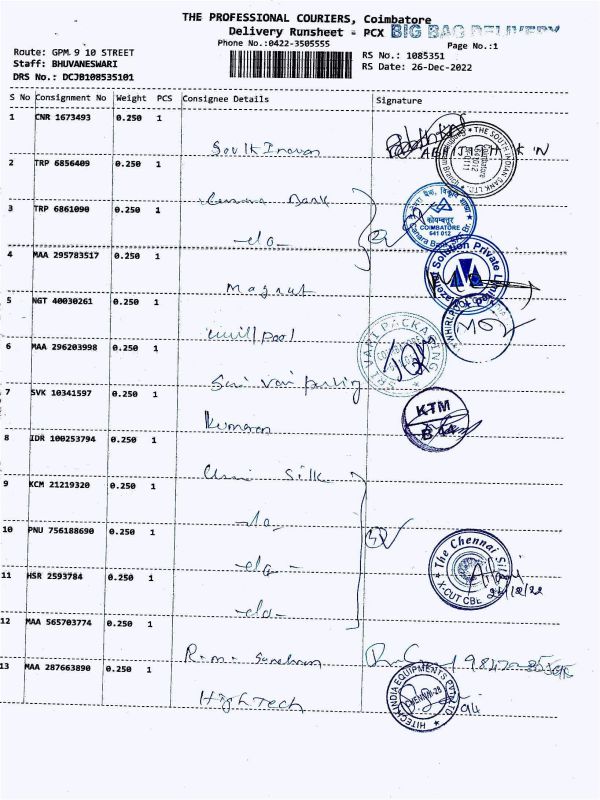 THE PROFESSIONAL COURIERS, Coimbatore
Delivery Runsheet - PCX BIG BAG DELIVERY
Phone No.:0422-3505555
Page No.:1
Route: GPM 9 10 STREET
RS No.: 1085351
Staff: BHUVANESWARI
RS Date: 26-Dec-2022
DRS No.: DCJB108535101
S No Consignment No Weight PCS Consignee Details Signature
1 CNR 1673493 0.250 1
2 TRP 6856409 0.250 1
Canara Bank
3 TRP 6861090 0.250 1
-do-
कोयम्बत्तूर
COIMBATORE
641 012
4 MAA 295783517 0.250 1
Magnut
5 NGT 40030261 0.250 1
6 MAA 296203998 0.250 1
SRI VARI PACKAGING
7 SVK 10341597 0.250 1
Kumaran
KTM
8 IDR 100253794 0.250 1
Silk
9 KCM 21219320 0.250 1
-do-
10 PNU 756188690 0.250 1
-do-
The Chennai Silks
X-CUT CBE
26/12/22
11 HSR 2593784 0.250 1
-do-
12 MAA 565703774 0.250 1
13 MAA 287663890 0.250 1
HighTech
HITECH INDIA EQUIPMENTS PVT LTD